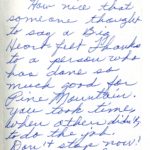 How nice that
someone thought
to say a Big
Heart felt Thanks
to a person who
has done so
much good for
Pine Mountain.
You took times
when others didn't,
to do the job.
Don't stop now!